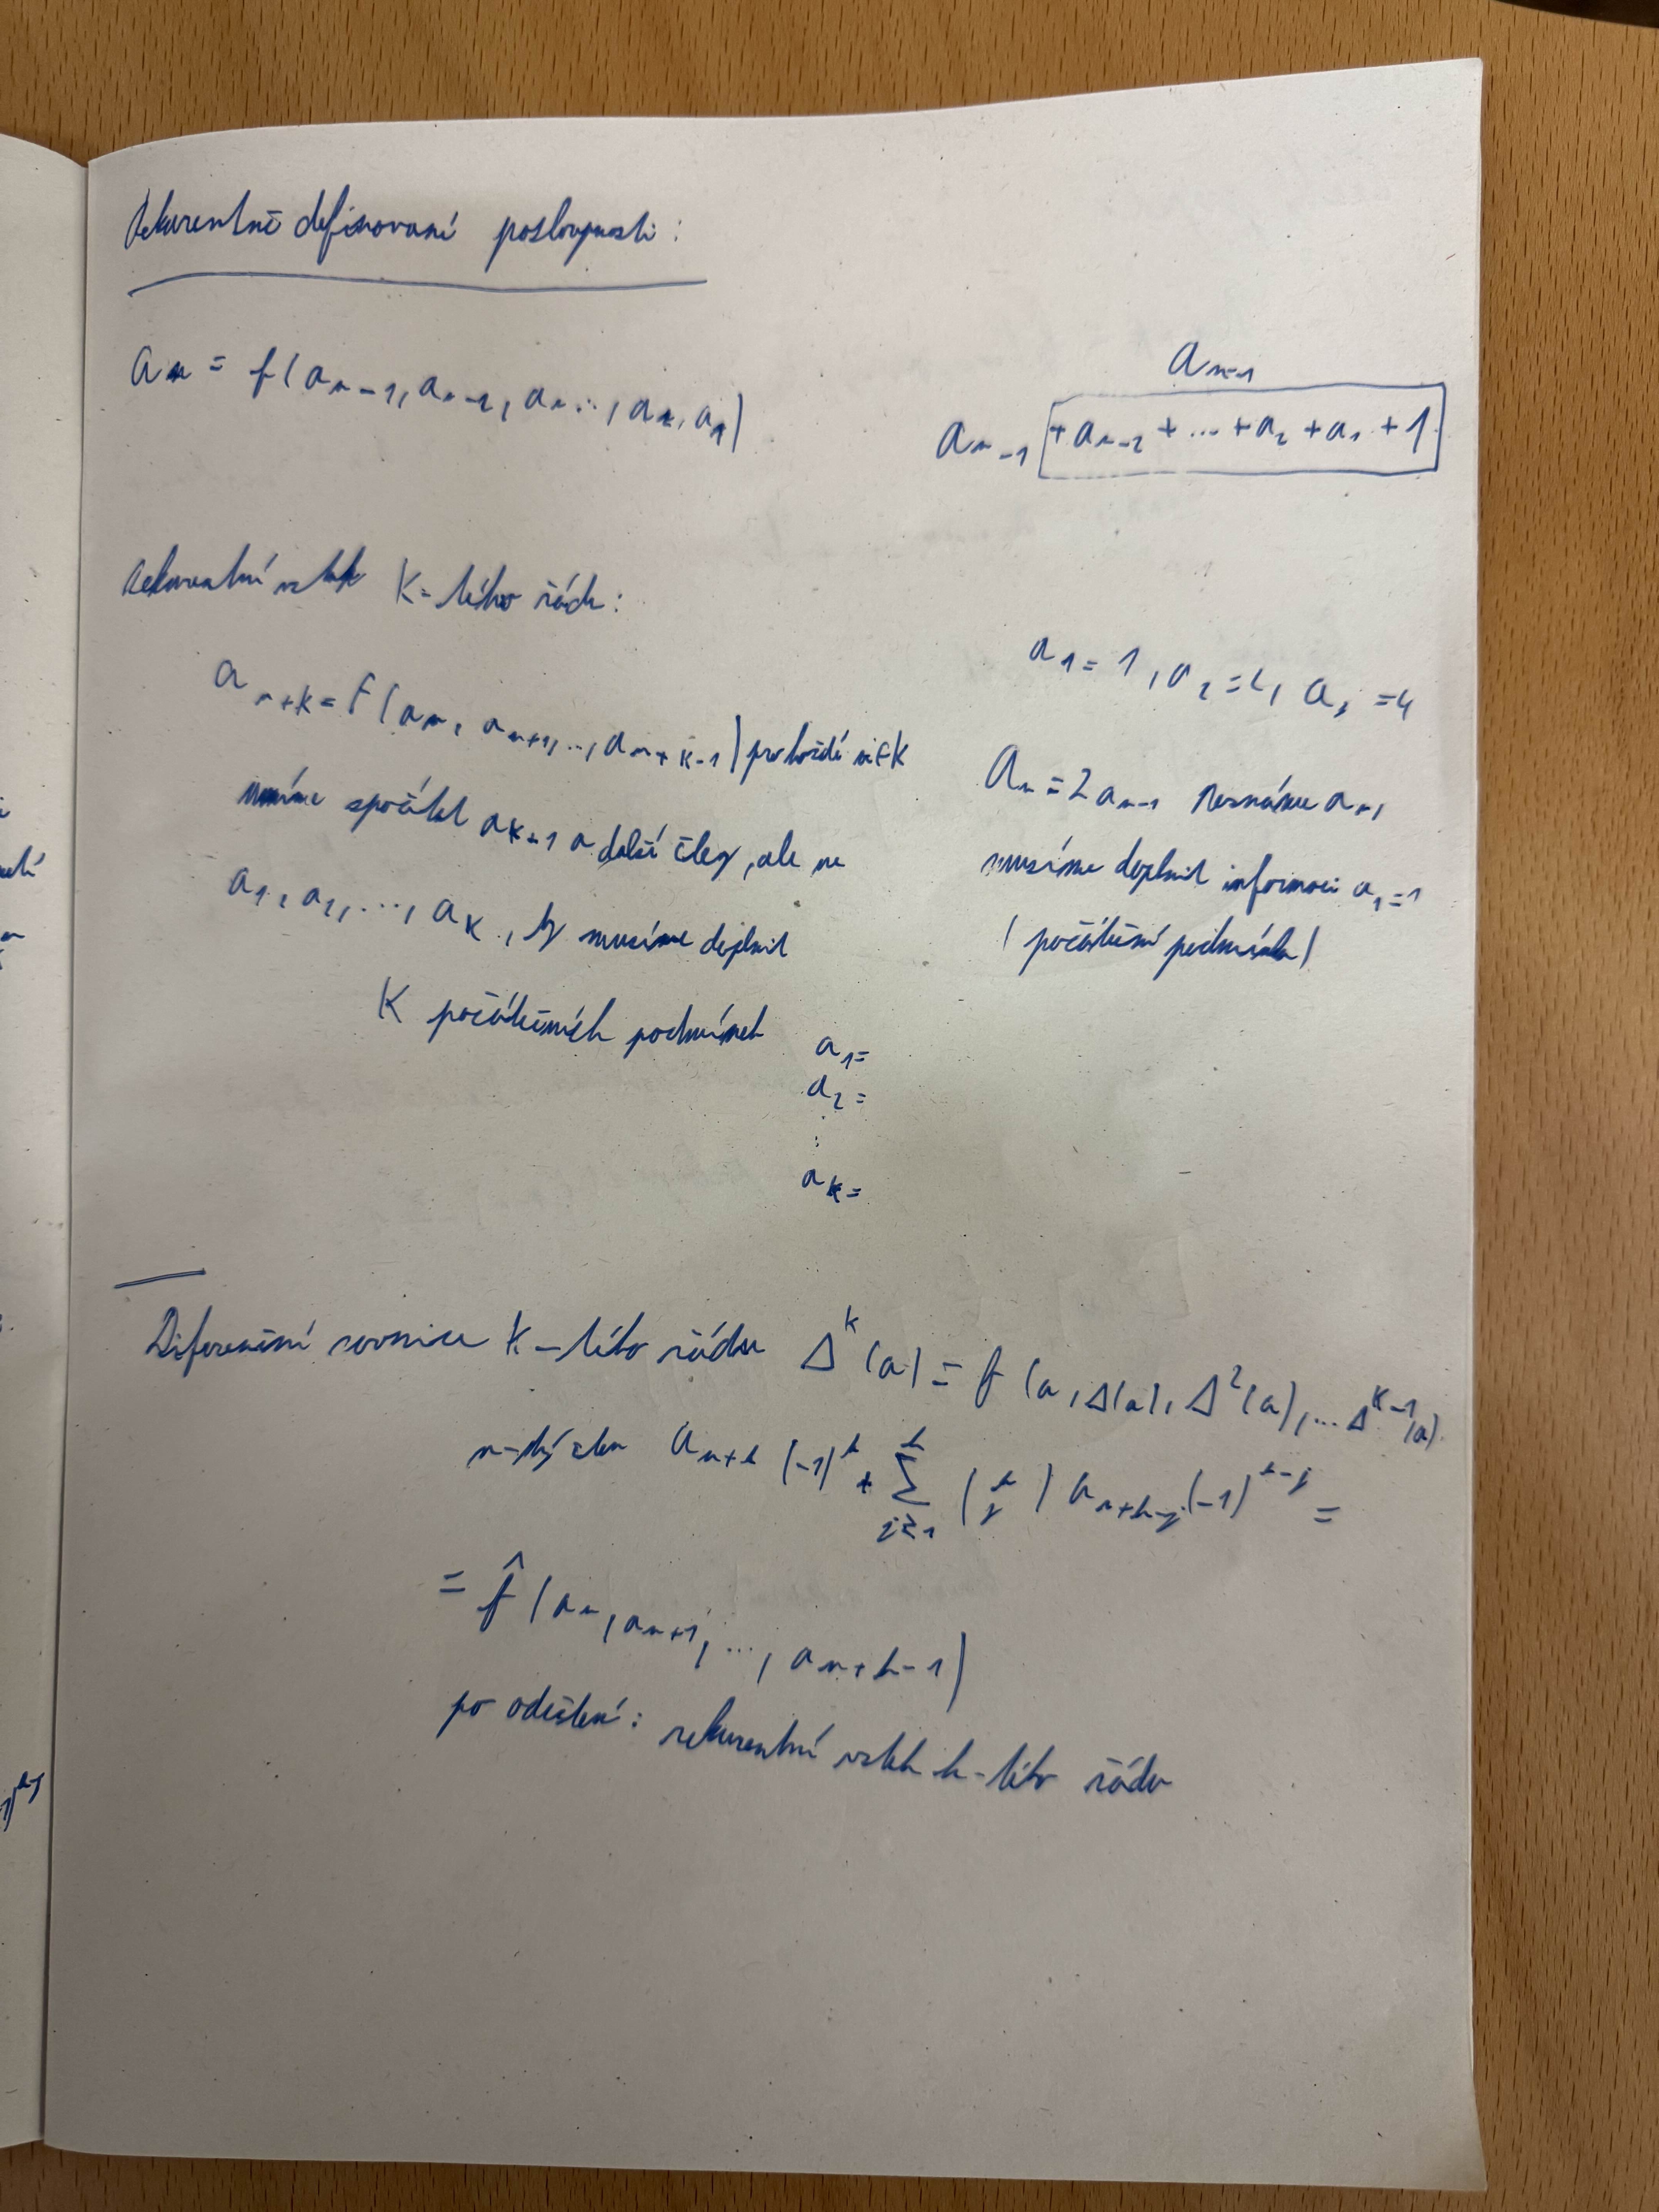 Rekurentně definované posloupnosti:
a_n = f(a_{n-1}, a_{n-2}, a_{n...}, a_2, a_1)
a_{n-1}
a_{n-1} + a_{n-2} + ... + a_2 + a_1 + 1
Rekurentní vztah K-tého řádu:
a_{n+K} = F(a_n, a_{n+1}, ..., a_{n+K-1}) pro každé
umíme spočítat a_{K+1} a další členy, ale ne
a_1, a_2, ..., a_K, ty musíme doplnit
K počátečních podmínek
a_1 =
a_2 =
:
a_K =
a_1 = 1, a_2 = 2, a_3 = 4
a_n = 2a_{n-1} neznáme a_1
musíme doplnit informaci a_1 = 1
(počáteční podmínka)
Diferenční rovnice K-tého řádu Δ^K(a) = f(a, Δ(a), Δ^2(a), ... Δ^{K-1}(a))
n-tý člen a_{n+k} (-1)^k + Σ_{j≥1}^k (k j) a_{n+k-j} (-1)^{k-j} =
= f̂(a_n, a_{n+1}, ..., a_{n+k-1})
po odečtení: rekurentní vztah k-tého řádu